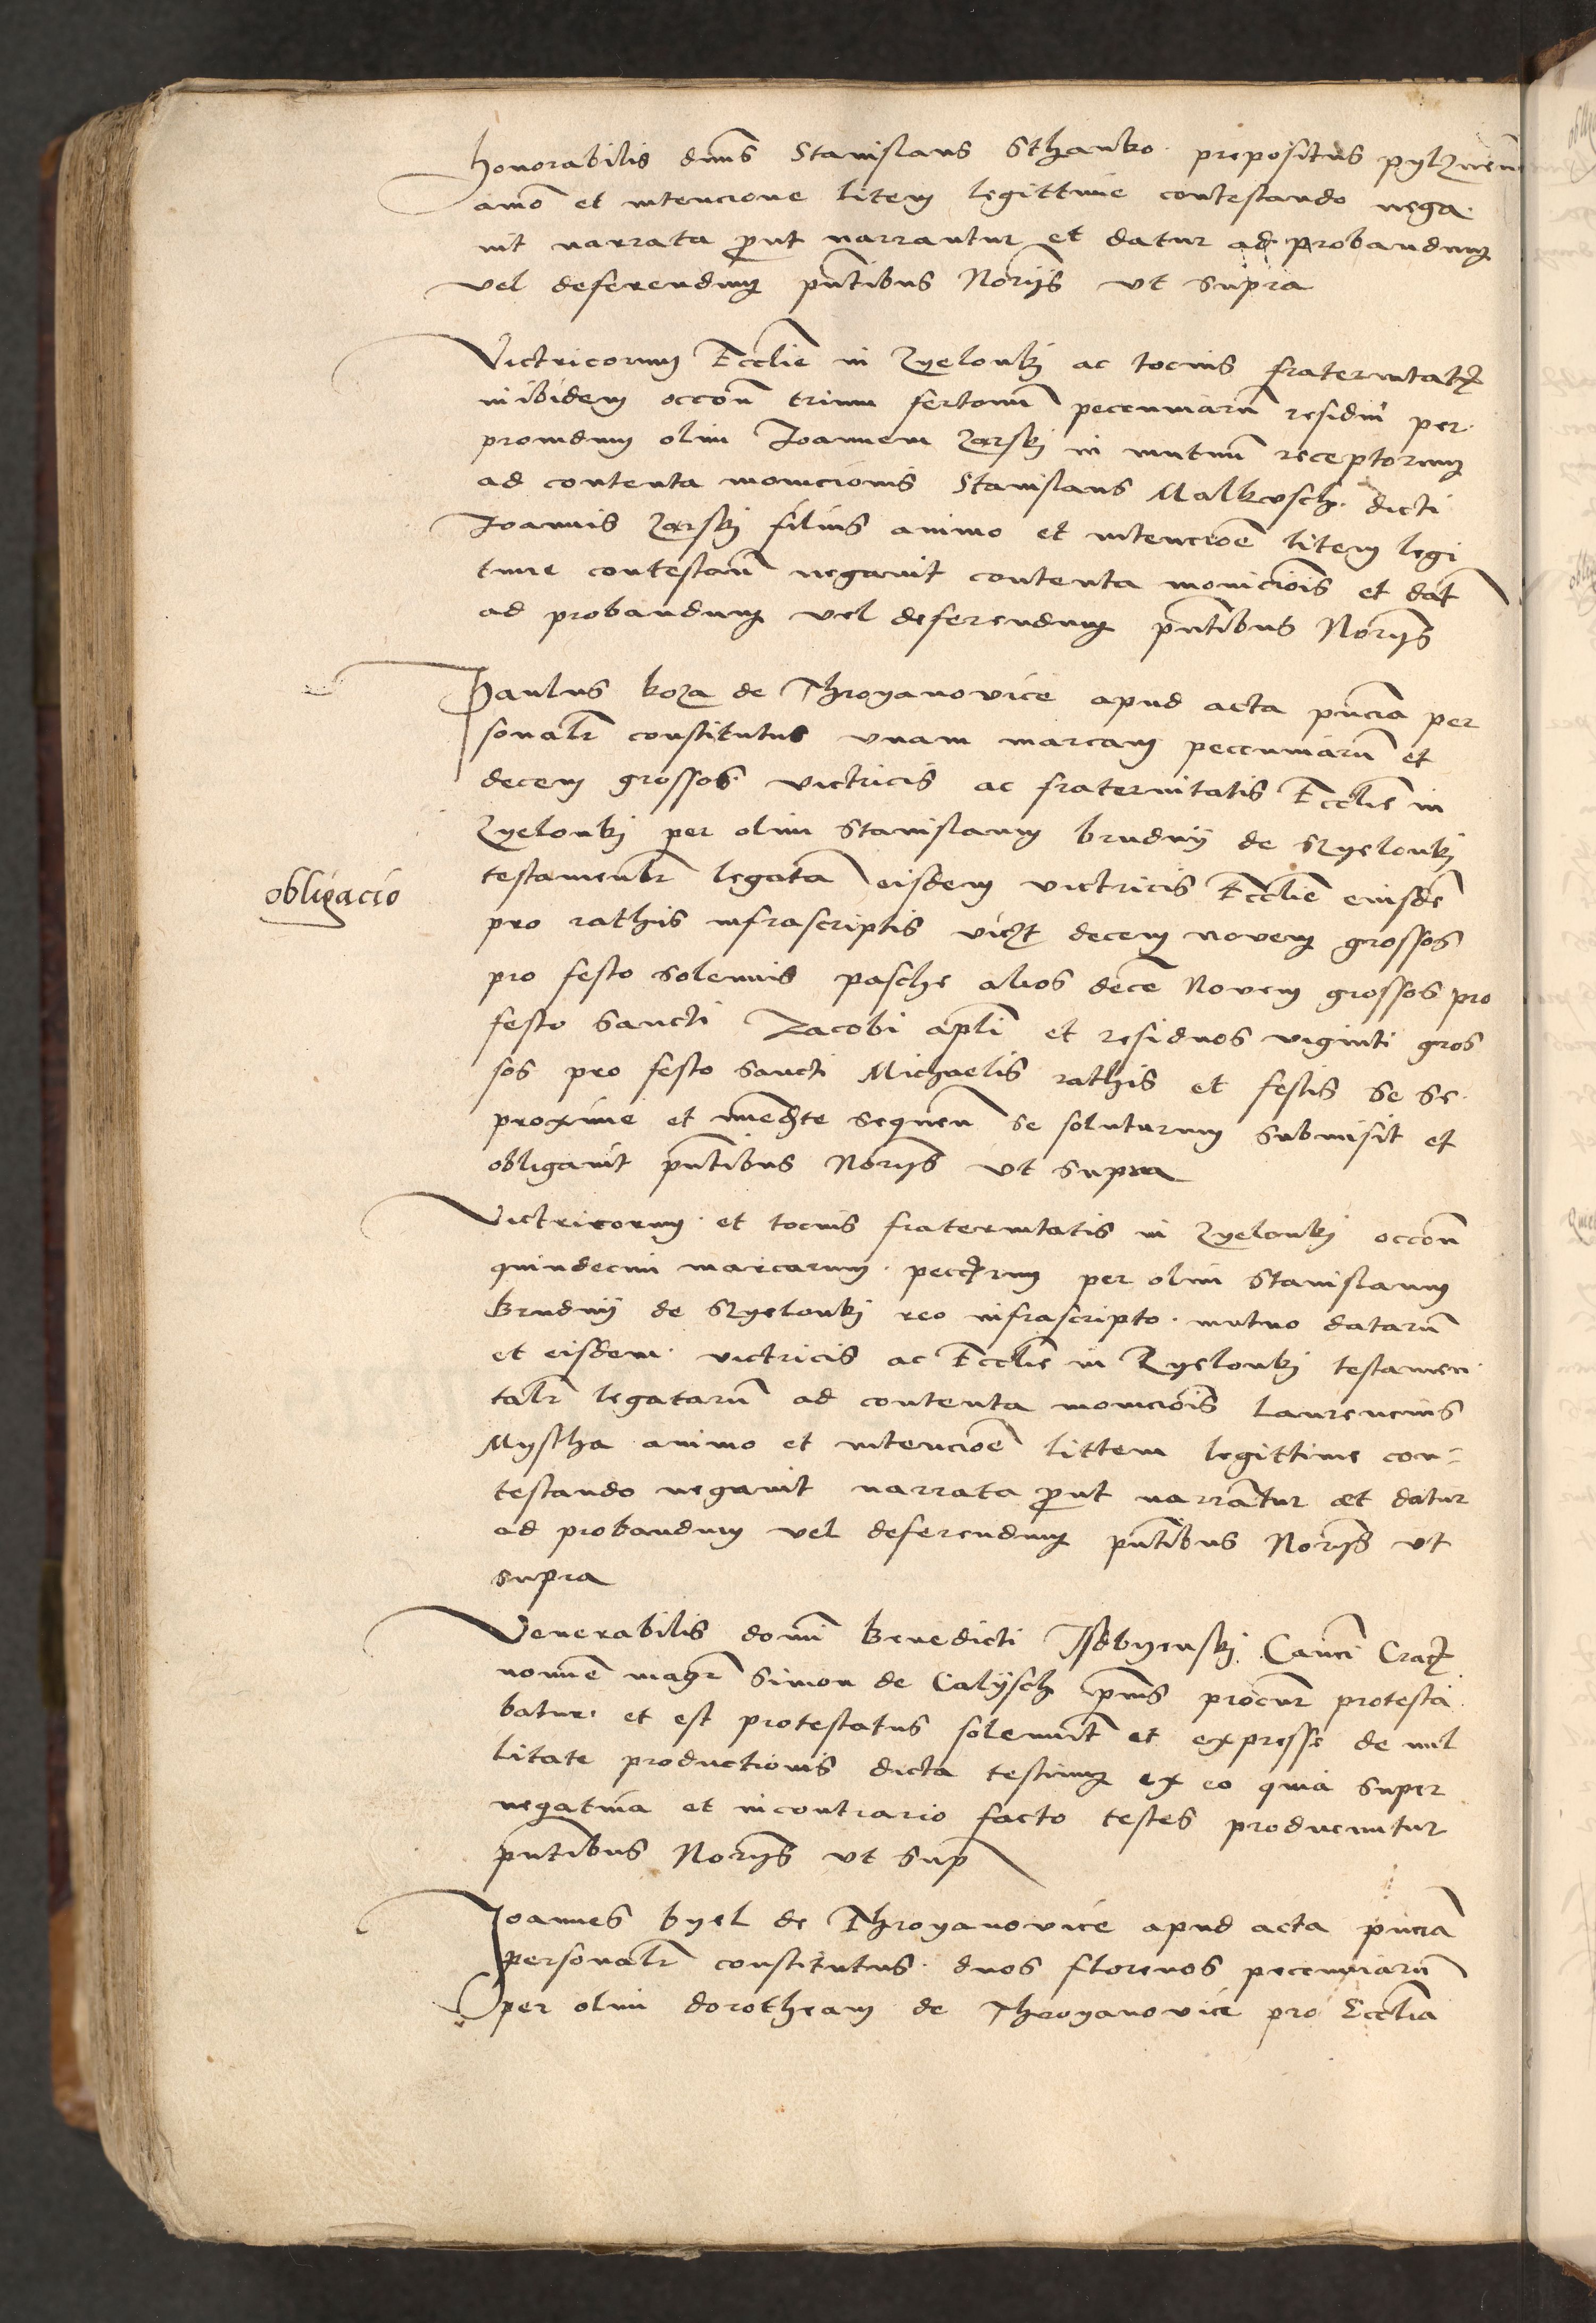 Honorabilis dnus Stanislaus Sthanko prepositus pylznen
aio et intencione litem legittime contestando nega
uit narrata prout narrantur et datur ad probandum
vel deferendum pntibus Norijs vt supra
Victricorum Ecclie in Zyelonki ac tocius fraternitatis
inibidem occon trium fertonum pecuniaru residui per
prouidum olim Joannem Zarski in mutuu receptorum
ad contenta monicionis Stanislaus Malkusch dicti
Joannis Zarski filius animo et intencioe litem legi
time contestan negauit contenta moniciois et dat
ad probandum vel deferendum pntibus Norijs
Paulus koza de Throyanovice apud acta pncia per
sonalr constitutus vnam marcam pecuniaru et
decem grossos victricis ac fraternitatis Ecclie in
Zyelonki per olim Stanislaum brudny de Szyelonki
obligacio
testamentlr legata eisdem victricis Ecclie eiusde
pro rathis infrascriptis viczt decem novem grossos
pro festo solennis pasche alios dece Novem grossos pro
festo sancti Jacobi apli et residuos viginti gros
sos pro festo sancti Michaelis rathis et festis se se
proxime et immediate sequen se soluturum submisit et
obligauit pntibus Norijs vt supra
Victricorum et tocius fraternitatis in Zyelonki occon
quindecim marcarum peccrum per olim Stanislaum
Brudny de Szyelonki reo infrascripto mutuo dataru
et eisdem victricis ac Ecclie in Zyelonki testamen
talr legataru ad contenta moniciois Laurencius
Myscha animo et intencioe littem legittime con-
testando negauit narrata prout narratur et datur
ad probandum vel deferendum pntibus Norijs vt
supra
Venerabilis domi Benedicti Isdbyenski Canci Crac
nomine magr Simon de Calysch ipius procur protesta
batur et est protestatus solennit et expresse de nul
litate productionis dicta testium ex eo quia super
negatiua et in contrario facto testes producuntur
pntibus Norijs vt sup
Joannes byel de Throyanovice apud acta pncia
personalr constitutus duos florenos pecuniaru
per olim dorotheam de Throyanovice pro Ecclia